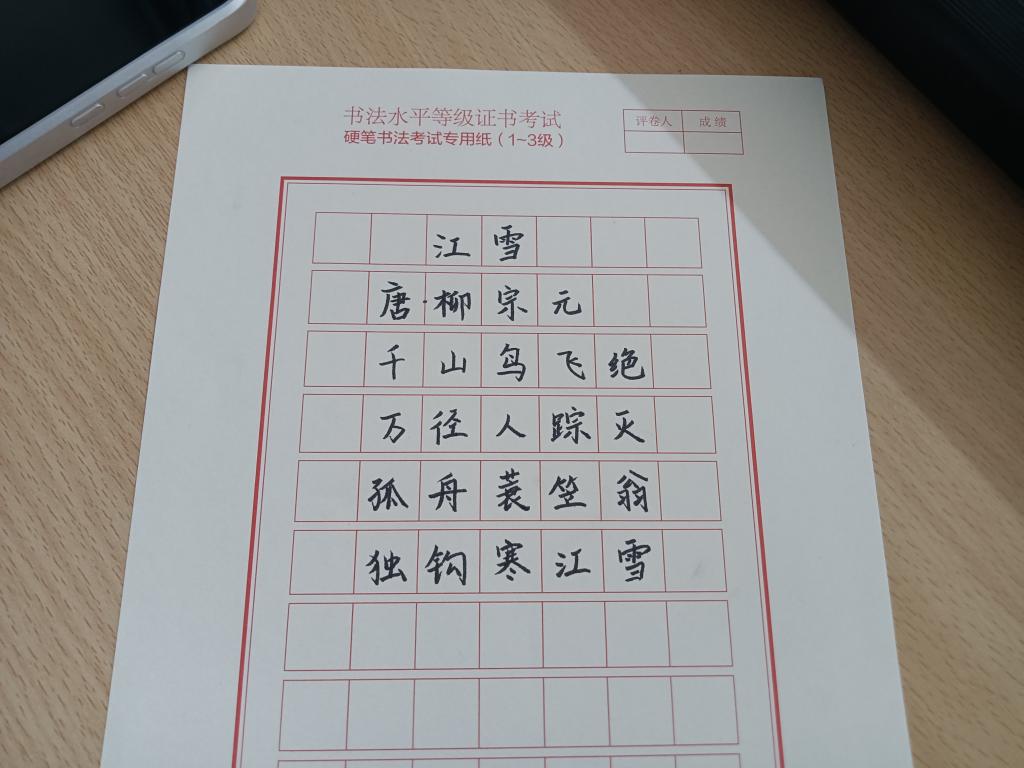 书法水平等级证书考试
硬笔书法考试专用纸（1~3级）
评卷人 成绩
江雪
唐·柳宗元
千山鸟飞绝
万径人踪灭
孤舟蓑笠翁
独钩寒江雪